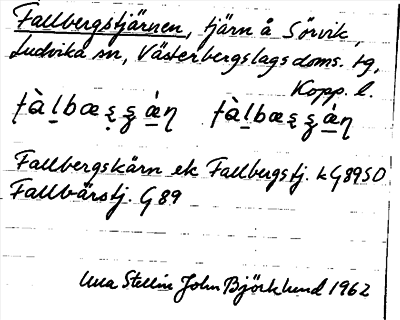 Fallbergstjärnen, tjärn å Sörvik,
Ludvika sn, Västerbergslags doms. tg,
Kopp. l.
Fallbergskärn ek Fallbergstj. k G 89 SO
Fallbärstj. G 89
Stellin John Björklund 1962